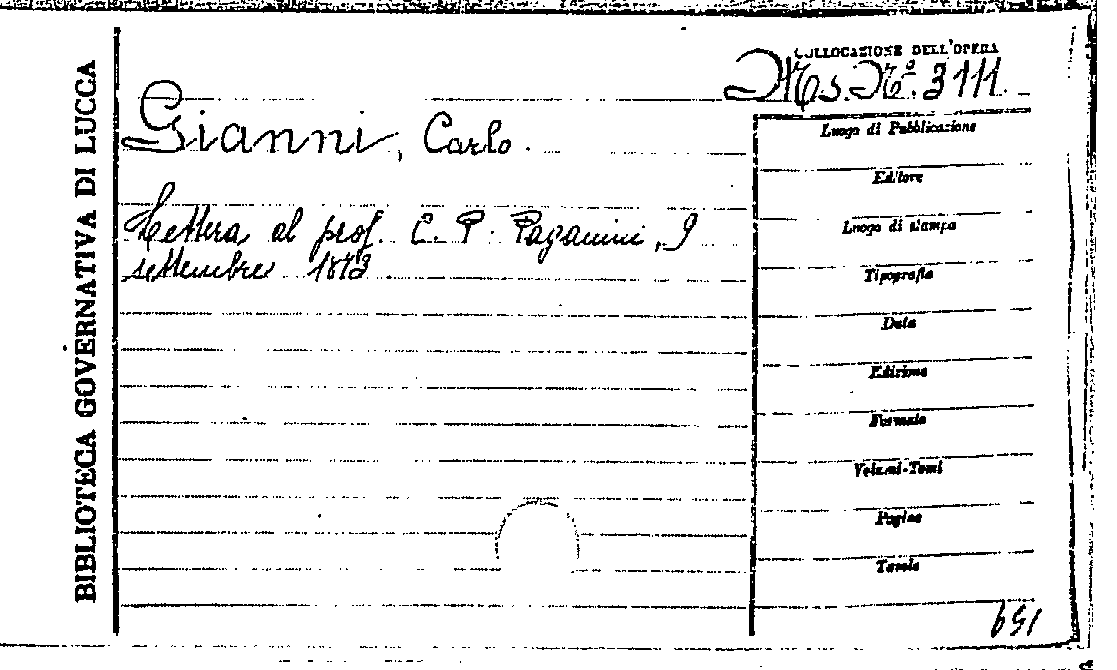 BIBLIOTECA GOVERNATIVA DI LUCCA
COLLOCAZIONE DELL'OPERA
Ms. N°. 3111
Gianni, Carlo.
Lettera al prof. C. P. Paganini, 9
settembre 1873
Luogo di Pubblicazione
Editore
Luogo di stampa
Tipografia
Data
Edizione
Formato
Volumi-Tomi
Pagine
Tavole